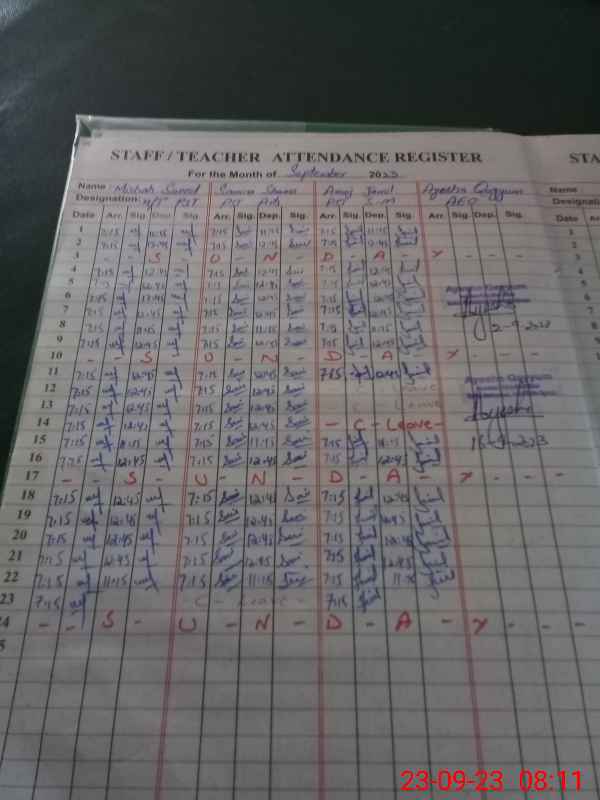 STAFF / TEACHER ATTENDANCE REGISTER STA
For the Month of September 2023.
Name: Misbah Saeed Arooj Jamil Ayesha Qayyum Name
Designation: H/T PST PST PST S-M AEO Designati
Date Arr. Sig. Dep. Sig. Arr. Sig. Dep. Sig. Arr. Sig. Dep. Sig. Arr. Sig. Dep. Sig. Date A
1 7:15 11:15 7:15 11:15 7:15 11:15 1
2 7:15 12:45 7:15 12:45 7:15 12:45 2
3 - - S - U - N - D - A - Y - - - 3
4 7:15 12:45 7:15 12:45 7:15 12:45 4
5 7:15 12:45 7:15 12:45 7:15 12:45 5
6 7:15 12:45 7:15 12:45 7:15 12:45 Ayesha Qayyum 6
7 7:15 12:45 7:15 12:45 7:15 12:45 7
8 7:15 11:15 7:15 11:15 7:15 11:15 2-9-2023 8
9 7:15 12:45 7:15 12:45 7:15 12:45 9
10 - - S - U - N - D - A - Y - - - 10
11 7:15 12:45 7:15 12:45 7:15 12:45 Ayesha Qayyum 11
12 7:15 12:45 7:15 12:45 Leave
13 7:15 12:45 7:15 12:45 Leave
14 7:15 12:45 7:15 12:45 - C - Leave -
15 7:15 11:15 7:15 11:15 7:15 11:15 16-9-2023
16 7:15 12:45 7:15 12:45 7:15 12:45
17 - - S - U - N - D - A - Y - - -
18 7:15 12:45 7:15 12:45 7:15 12:45
19 7:15 12:45 7:15 12:45 7:15 12:45
20 7:15 12:45 7:15 12:45 7:15 12:45
21 7:15 12:45 7:15 12:45 7:15 12:45
22 7:15 11:15 7:15 11:15 7:15 11:15
23 7:15 - C - Leave - 7:15
24 - - S - U - N - D - A - Y - - -
23-09-23 08:11